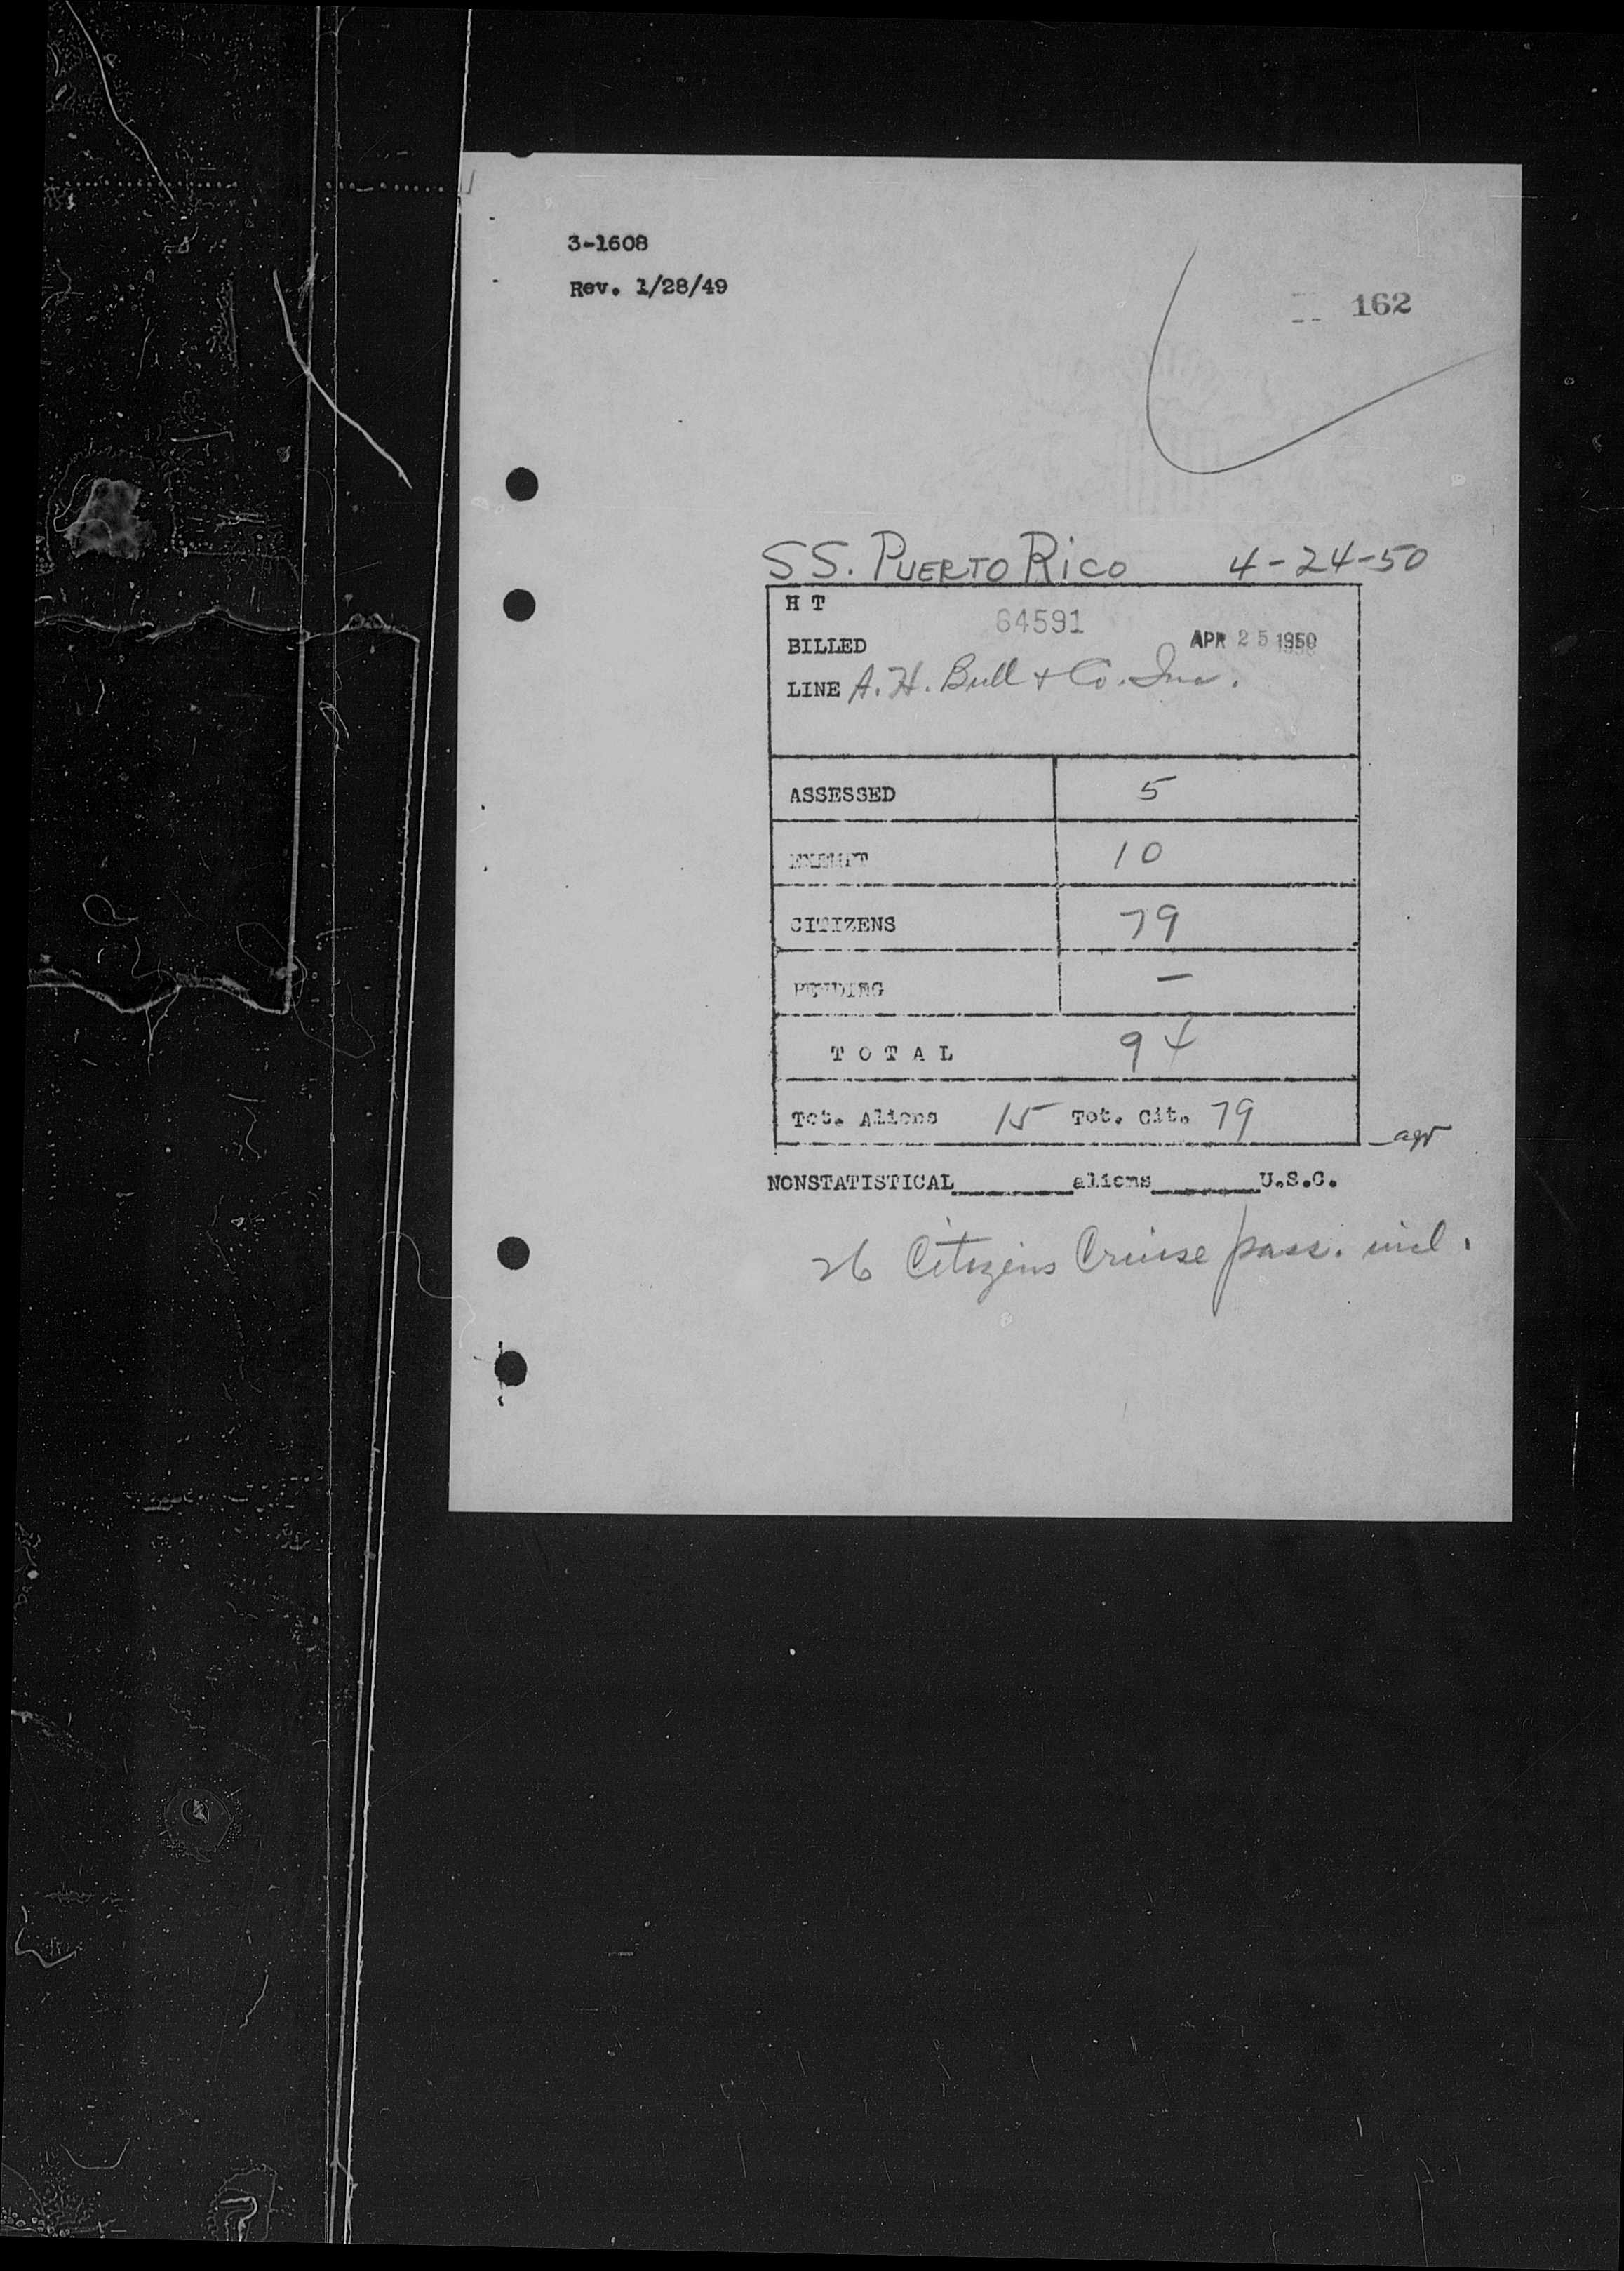 3-1608
Rev. 1/28/49
162
SS. PUERTO RICO 4-24-50
H T
64591
BILLED APR 25 1950
LINE A. H. Bull & Co. Inc.
ASSESSED 5
EXEMPT 10
CITIZENS 79
PENDING -
T O T A L 94
Tot. Aliens 15 Tot. Cit. 79
NONSTATISTICAL________aliens________U.S.C.
26 Citizens Cruise pass. incl.